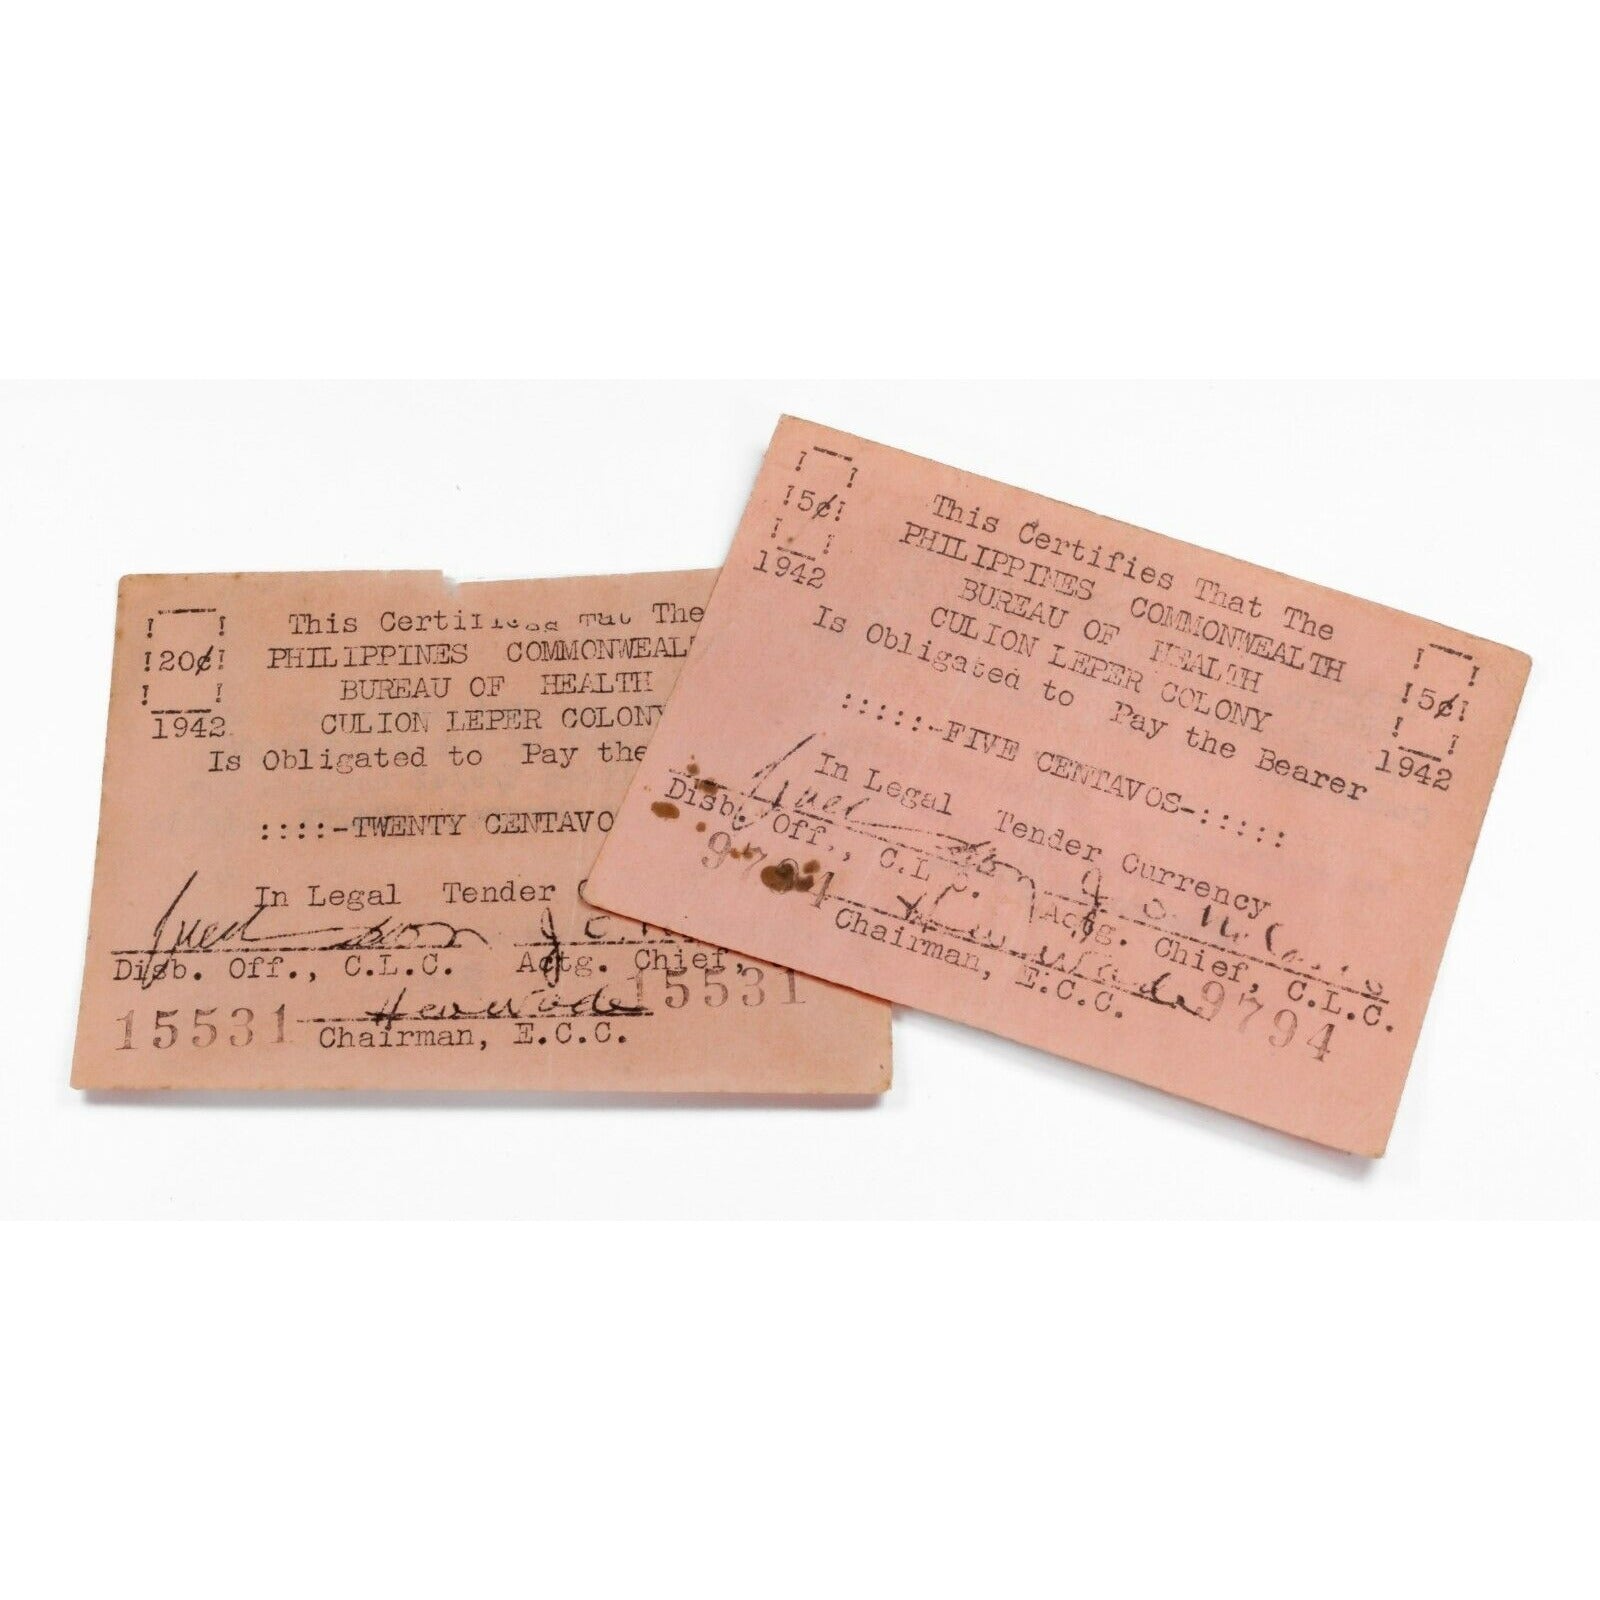 20¢
1942
This Certifies That The
PHILIPPINES COMMONWEAL
BUREAU OF HEALTH
CULION LEPER COLONY
Is Obligated to Pay the
::::-TWENTY CENTAVO
In Legal Tender
Disb. Off., C.L.C. Actg. Chief,
15531 15531
Chairman, E.C.C.
5¢ 5¢
1942 1942
This Certifies That The
PHILIPPINES COMMONWEALTH
BUREAU OF HEALTH
CULION LEPER COLONY
Is Obligated to Pay the Bearer
:::::-FIVE CENTAVOS-:::::
In Legal Tender Currency
Disb. Off., C.L.C. Actg. Chief, C.L.C.
9794 9794
Chairman, E.C.C.